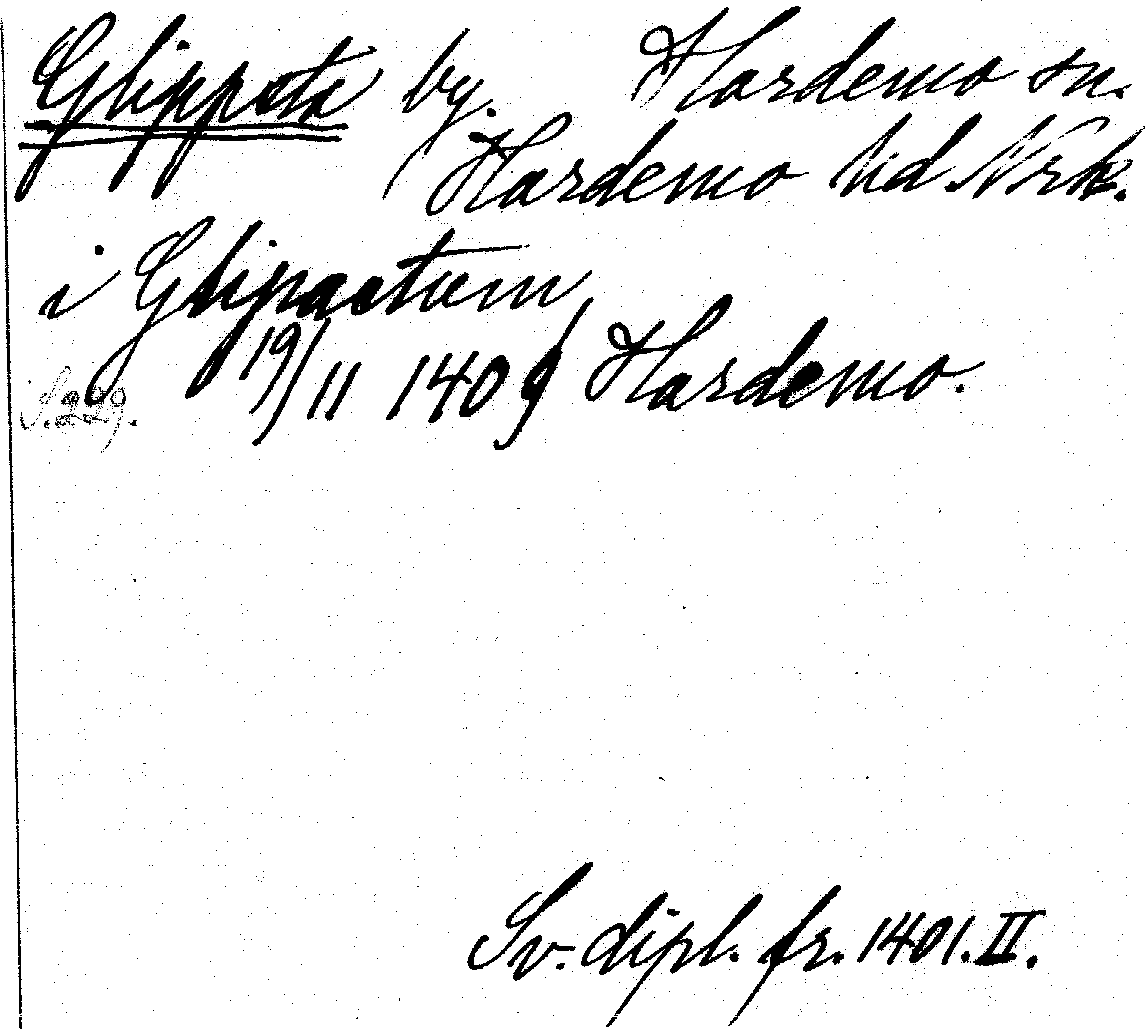 Glippsta by. Hardemo sn.
Hardemo hd Nrk.
i Glipastum
19/11 1409 Hardemo.
S. 229.
Sv. dipl. fr. 1401. II.